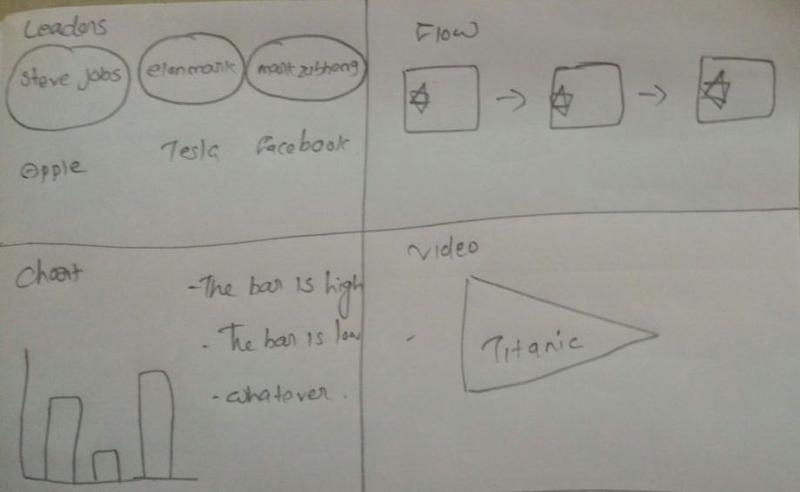 Leaders
Steve Jobs
elonmask
mark zubherg
Apple
Tesla
Facebook
Flow
Chart
-The bar is high
- The bar is low
- whatever.
Video
Titanic